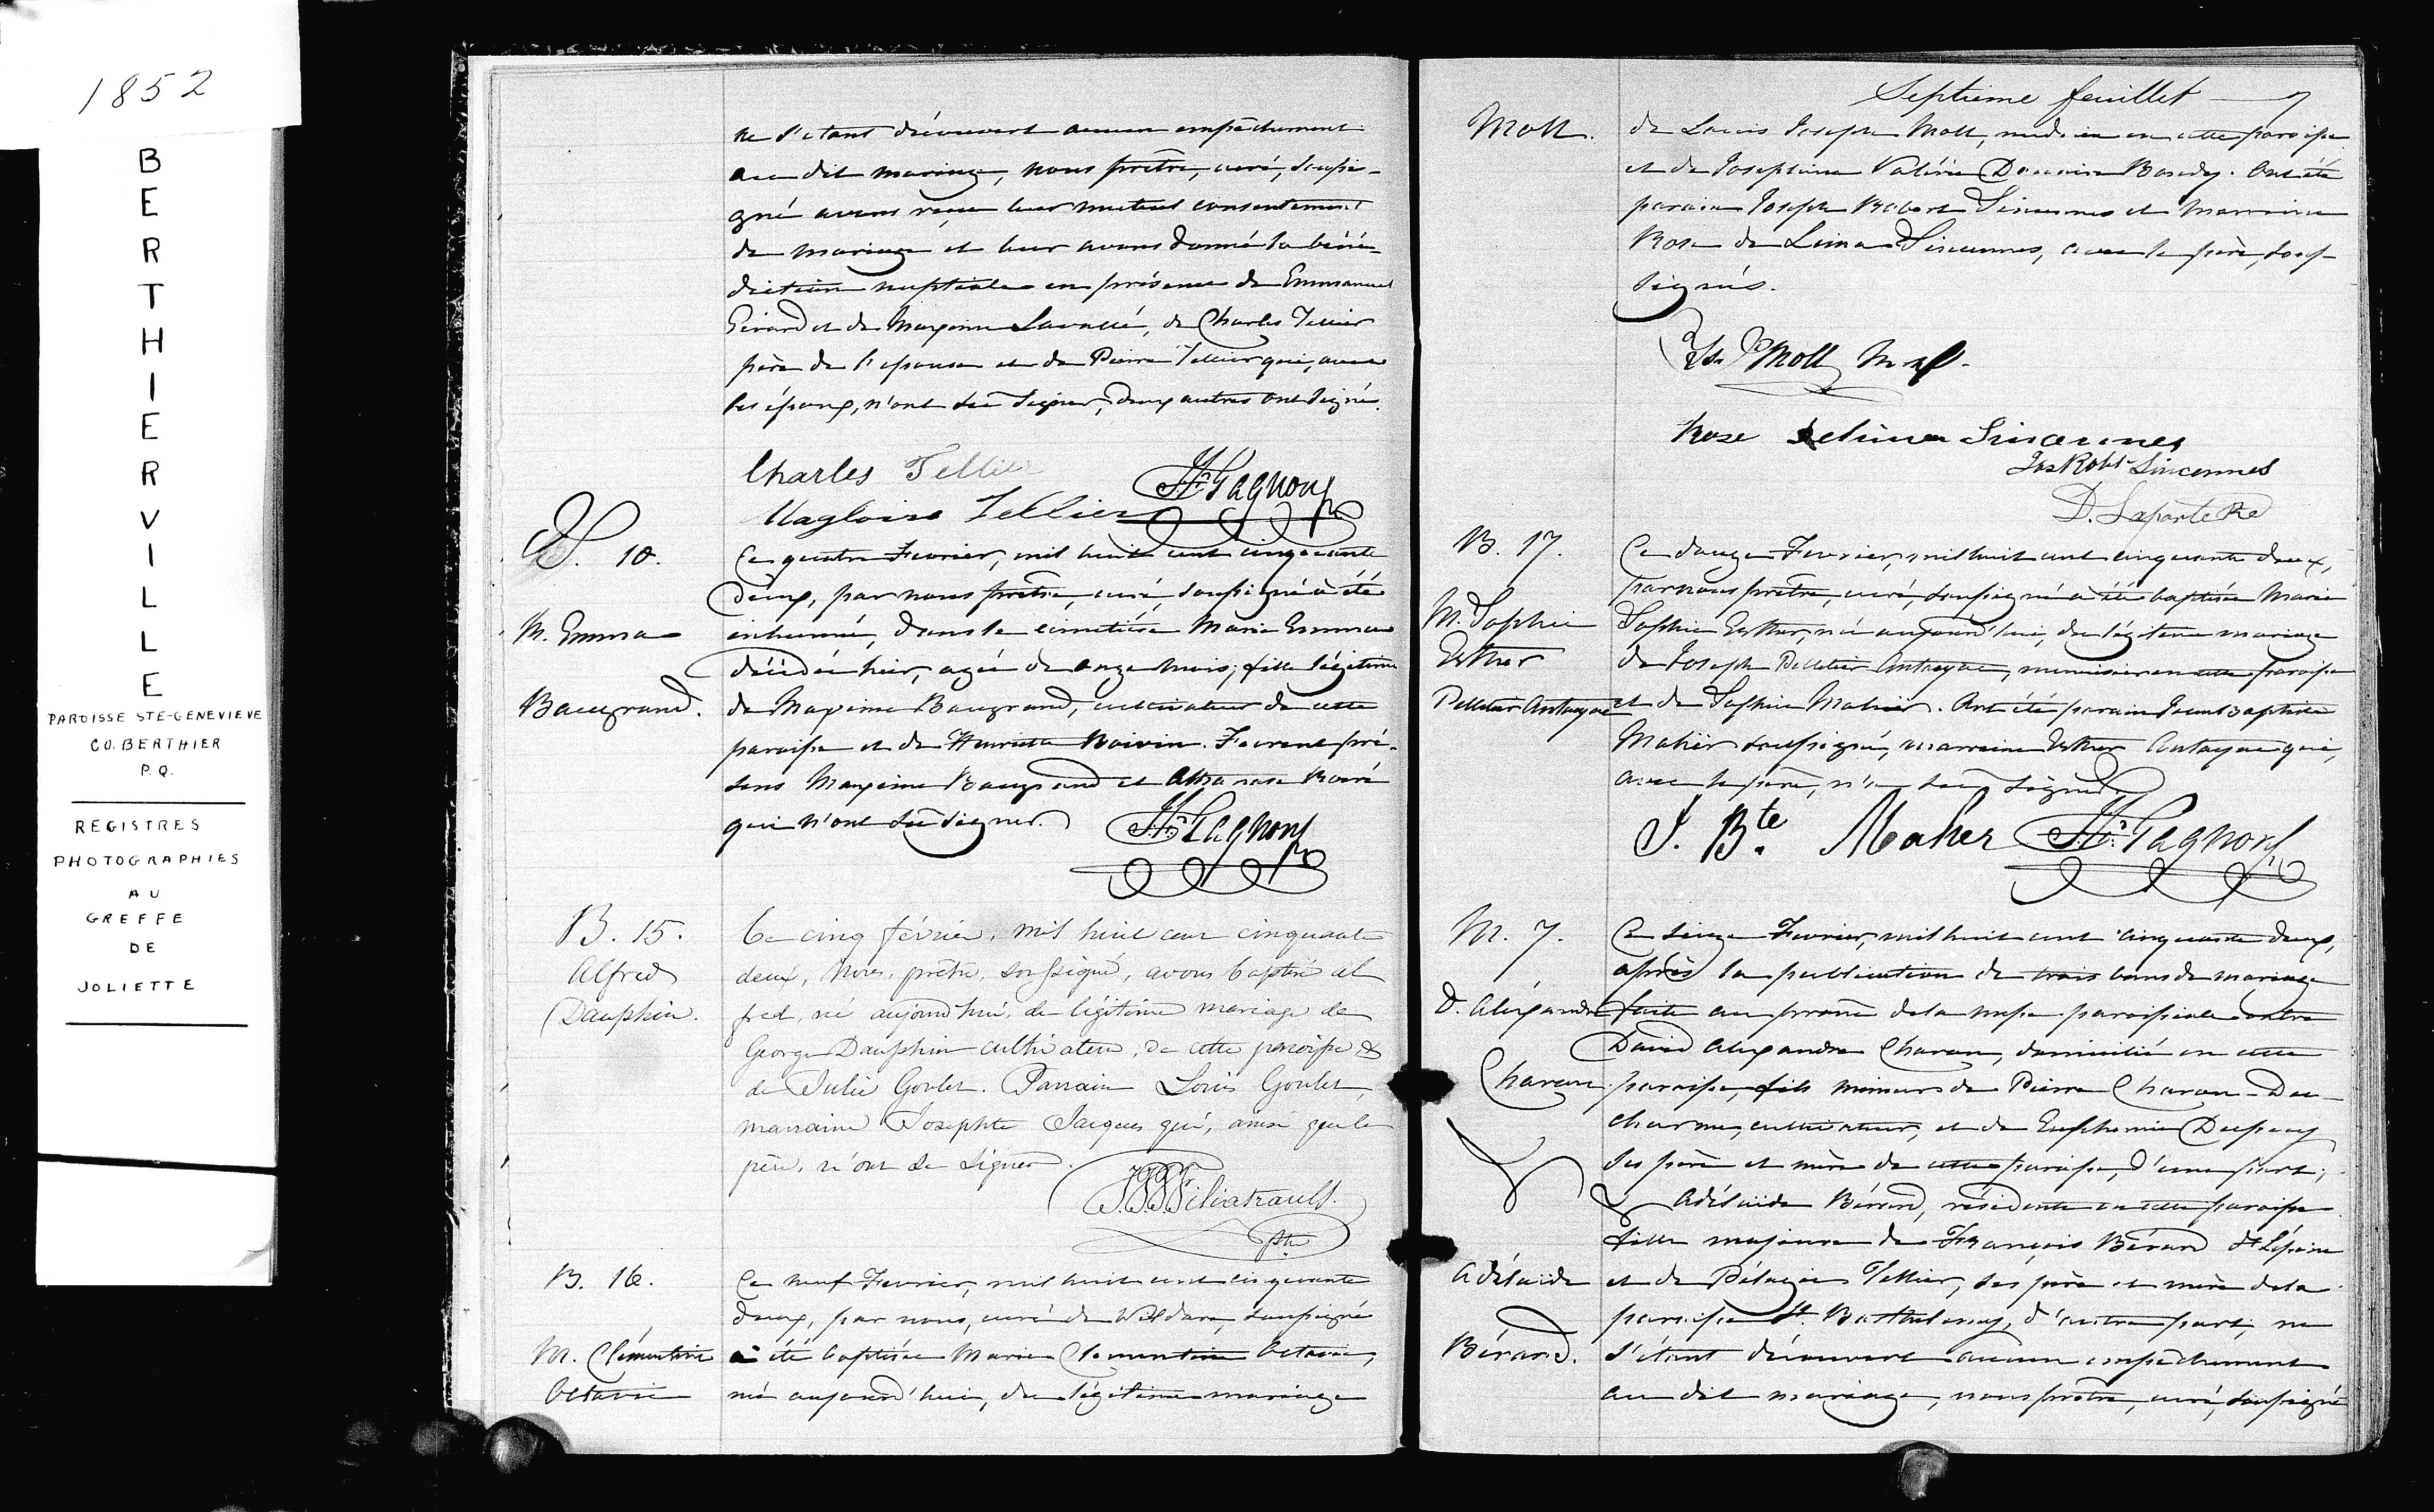 1852
BERTHIERVILLE
PAROISSE STE-GENEVIEVE
CO. BERTHIER
P.Q.
REGISTRES
PHOTOGRAPHIES
AU
GREFFE
DE
JOLIETTE
ne s'étant découvert aucun empêchement
au dit mariage, nous prêtre, curé, soussi-
gné avons reçu leur mutuel consentement
de mariage et leur avons donné la béné-
diction nuptiale en présence de Emmanuel
Gérard et de Maxime Lavallé, de Charles Tellier
père de l'épouse et de Pierre Tellier qui, avec
les époux, n'ont su signer, deux autres ont signé.
Charles Tellier
Magloire Tellier
J. F. Gagnon ptre
S. 10.
M. Emma
Baugrand.
Ce quatre Fevrier, mil huit cent cinquante
deux, par nous prêtre, curé, soussigné a été
inhumé, dans le cimetière Marie Emma
décédée hier, agée de onze mois; fille légitime
de Maxime Baugrand, cultivateur de cette
paroisse et de Henriette Boivin. Furent pré-
sens Maxime Baugrand et Athanase Boivé
qui n'ont su signer.
J. F. Gagnon ptre
B. 15.
Alfred
Dauphin.
Ce cinq février, mil huit cent cinquante
deux, Nous, prêtre, soussigné, avons baptisé Al
fred, né aujourd'hui, du légitime mariage de
George Dauphin cultivateur, de cette paroisse &
de Julie Goulet. Parrain Louis Goulet,
marraine Josephte Jacques qui, ainsi que le
père, n'ont su signer.
Filiatrault.
ptre
B. 16.
M. Clémentine
Octavie
Ce neuf Fevrier, mil huit cent cinquante
deux, par nous, curé de Kildare, soussigné
a été baptisée Marie Clementine Octavie,
née aujourd'hui, du légitime mariage
Septième feuillet 7
Moll.
de Louis Joseph Moll, médecin en cette paroisse
et de Josephine Valérie Bondy. Ont été
parain Joseph Robert Sincennes et marraine
Rose de Lima Sincennes, avec le père, sous-
signés.
Ls Js Moll
Rose Delima Sincennes
Jos Robt Sincennes
D. Laporte
B. 17.
M. Sophie
Esther
Pelletier Antaya
Ce douze Fevrier, mil huit cent cinquante deux,
par nous prêtre, curé, soussigné a été baptisée Marie
Sophie Esther, née aujourd'hui, du légitime mariage
de Joseph Pelletier Antaya, menuisier en cette paroisse
et de Sophie Maher. Ont été parain Jean Baptiste
Maher soussigné, marraine Esther Antaya qui,
avec le père, n'a su signer.
J. Bte Maher
J. F. Gagnon ptre
M. 7.
D. Alexandre
Charon.
&
Adélaïde
Bérard.
Ce seize Fevrier, mil huit cent cinquante deux,
après la publication de trois bans de mariage
faite au prone de la messe paroissiale entre
David Alexandre Charon, domicilié en cette
paroisse, fils mineur de Pierre Charon-Du-
charme, cultivateur, et de Euphemie Dupuy
ses père et mère de cette paroisse, d'une part;
& Adélaïde Bérard, résidente en cette paroisse
fille majeure de François Bérard dt Lépine
et de Pélagie Tellier, ses père et mère de la
paroisse St. Barthelemy, d'autre part, ne
s'étant découvert aucun empêchement
au dit mariage, nous prêtre, curé, soussigné